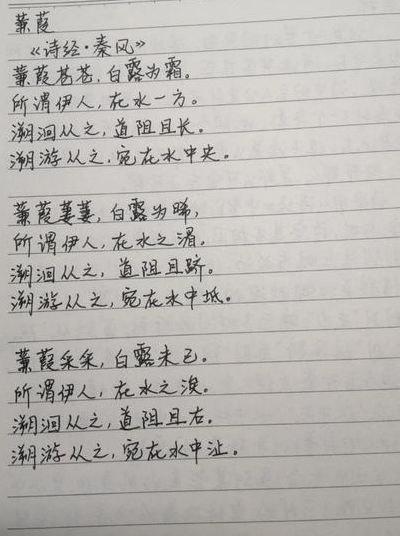 蒹葭
《诗经·秦风》
蒹葭苍苍，白露为霜。
所谓伊人，在水一方。
溯洄从之，道阻且长。
溯游从之，宛在水中央。
蒹葭萋萋，白露为晞，
所谓伊人，在水之湄。
溯洄从之，道阻且跻。
溯游从之，宛在水中坻。
蒹葭采采，白露未已。
所谓伊人，在水之涘。
溯洄从之，道阻且右。
溯游从之，宛在水中沚。